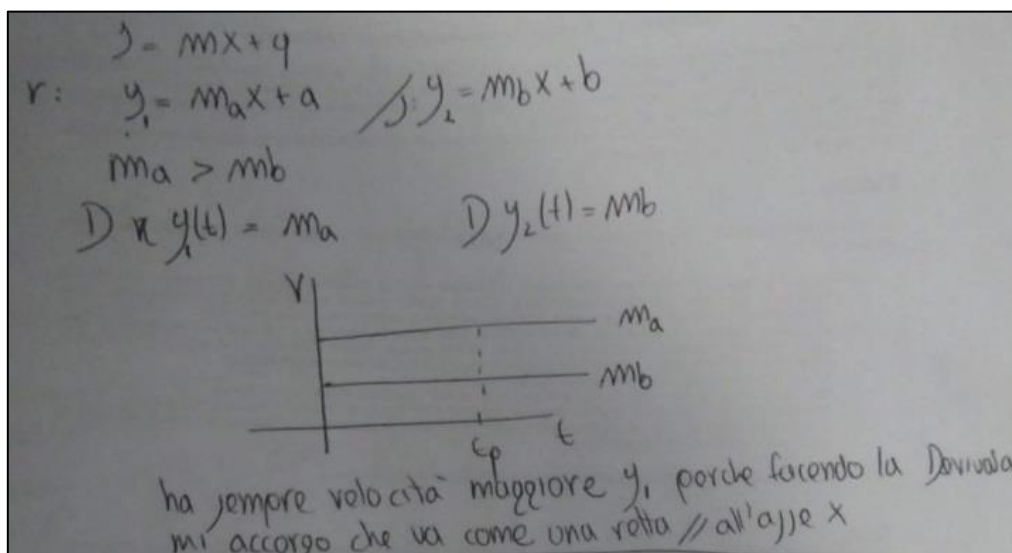 y = mx + q
r: y₁ = mₐx + a s: y₂ = m_bx + b
mₐ > mb
D y₁(t) = mₐ D y₂(t) = mb
V
mₐ
mb
tₚ t
ha sempre velocità maggiore y₁ perche facendo la Derivata
mi accorgo che va come una retta // all'asse x